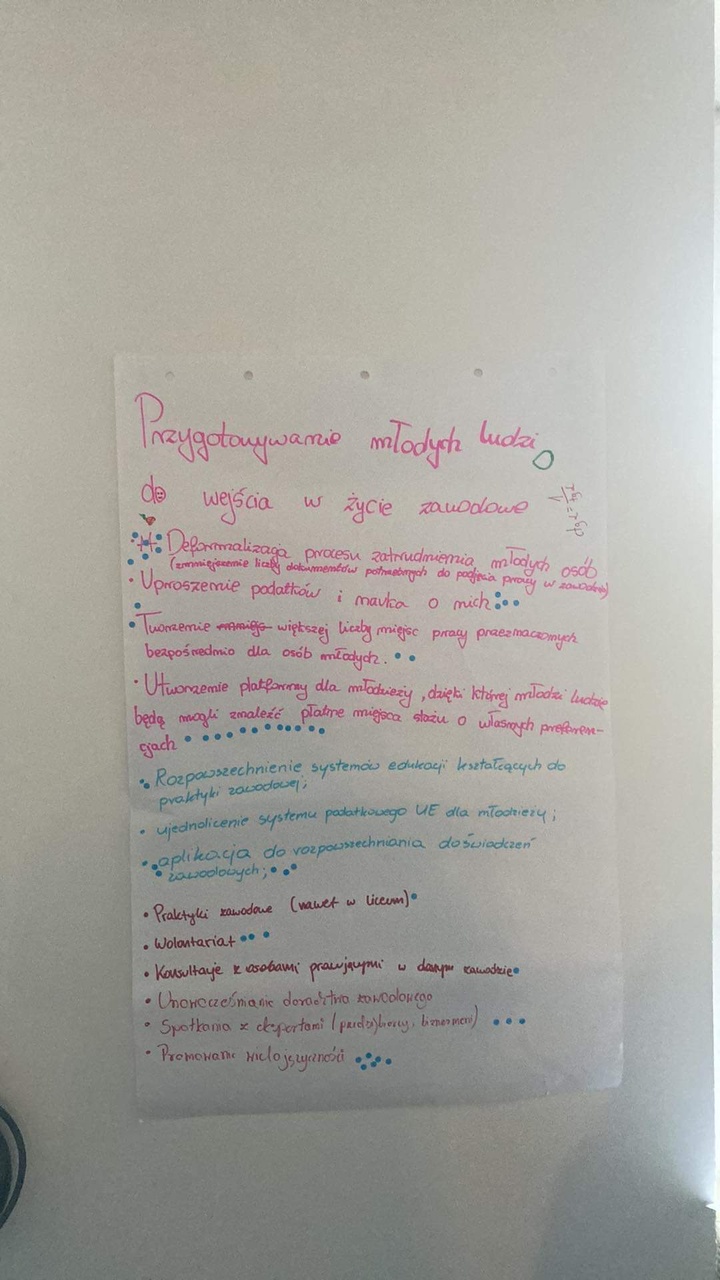 Przygotowywanie młodych ludzi
do wejścia w życie zawodowe
Deformalizacja procesu zatrudnienia młodych osób
(zmniejszenie liczby dokumentów potrzebnych do podjęcia pracy w zawodzie)
• Uproszenie podatków i nauka o nich
• Tworzenie większej liczby miejsc pracy przeznaczonych
bezpośrednio dla osób młodych.
• Utworzenie platformy dla młodzieży, dzięki której młodzi ludzie
będą mogli znaleźć płatne miejsca stażu o własnych preferen-
cjach
• Rozpowszechnienie systemów edukacji kształcących do
praktyki zawodowej;
• ujednolicenie systemu podatkowego UE dla młodzieży;
• aplikacja do rozpowszechniania doświadczeń
zawodowych;
• Praktyki zawodowe (nawet w liceum)
• Wolontariat
• Konsultacje z osobami pracującymi w danym zawodzie
• Unowocześnianie doradztwa zawodowego
• Spotkania z ekspertami (przedsiębiorcy, biznesmeni)
• Promowanie wielojęzyczności